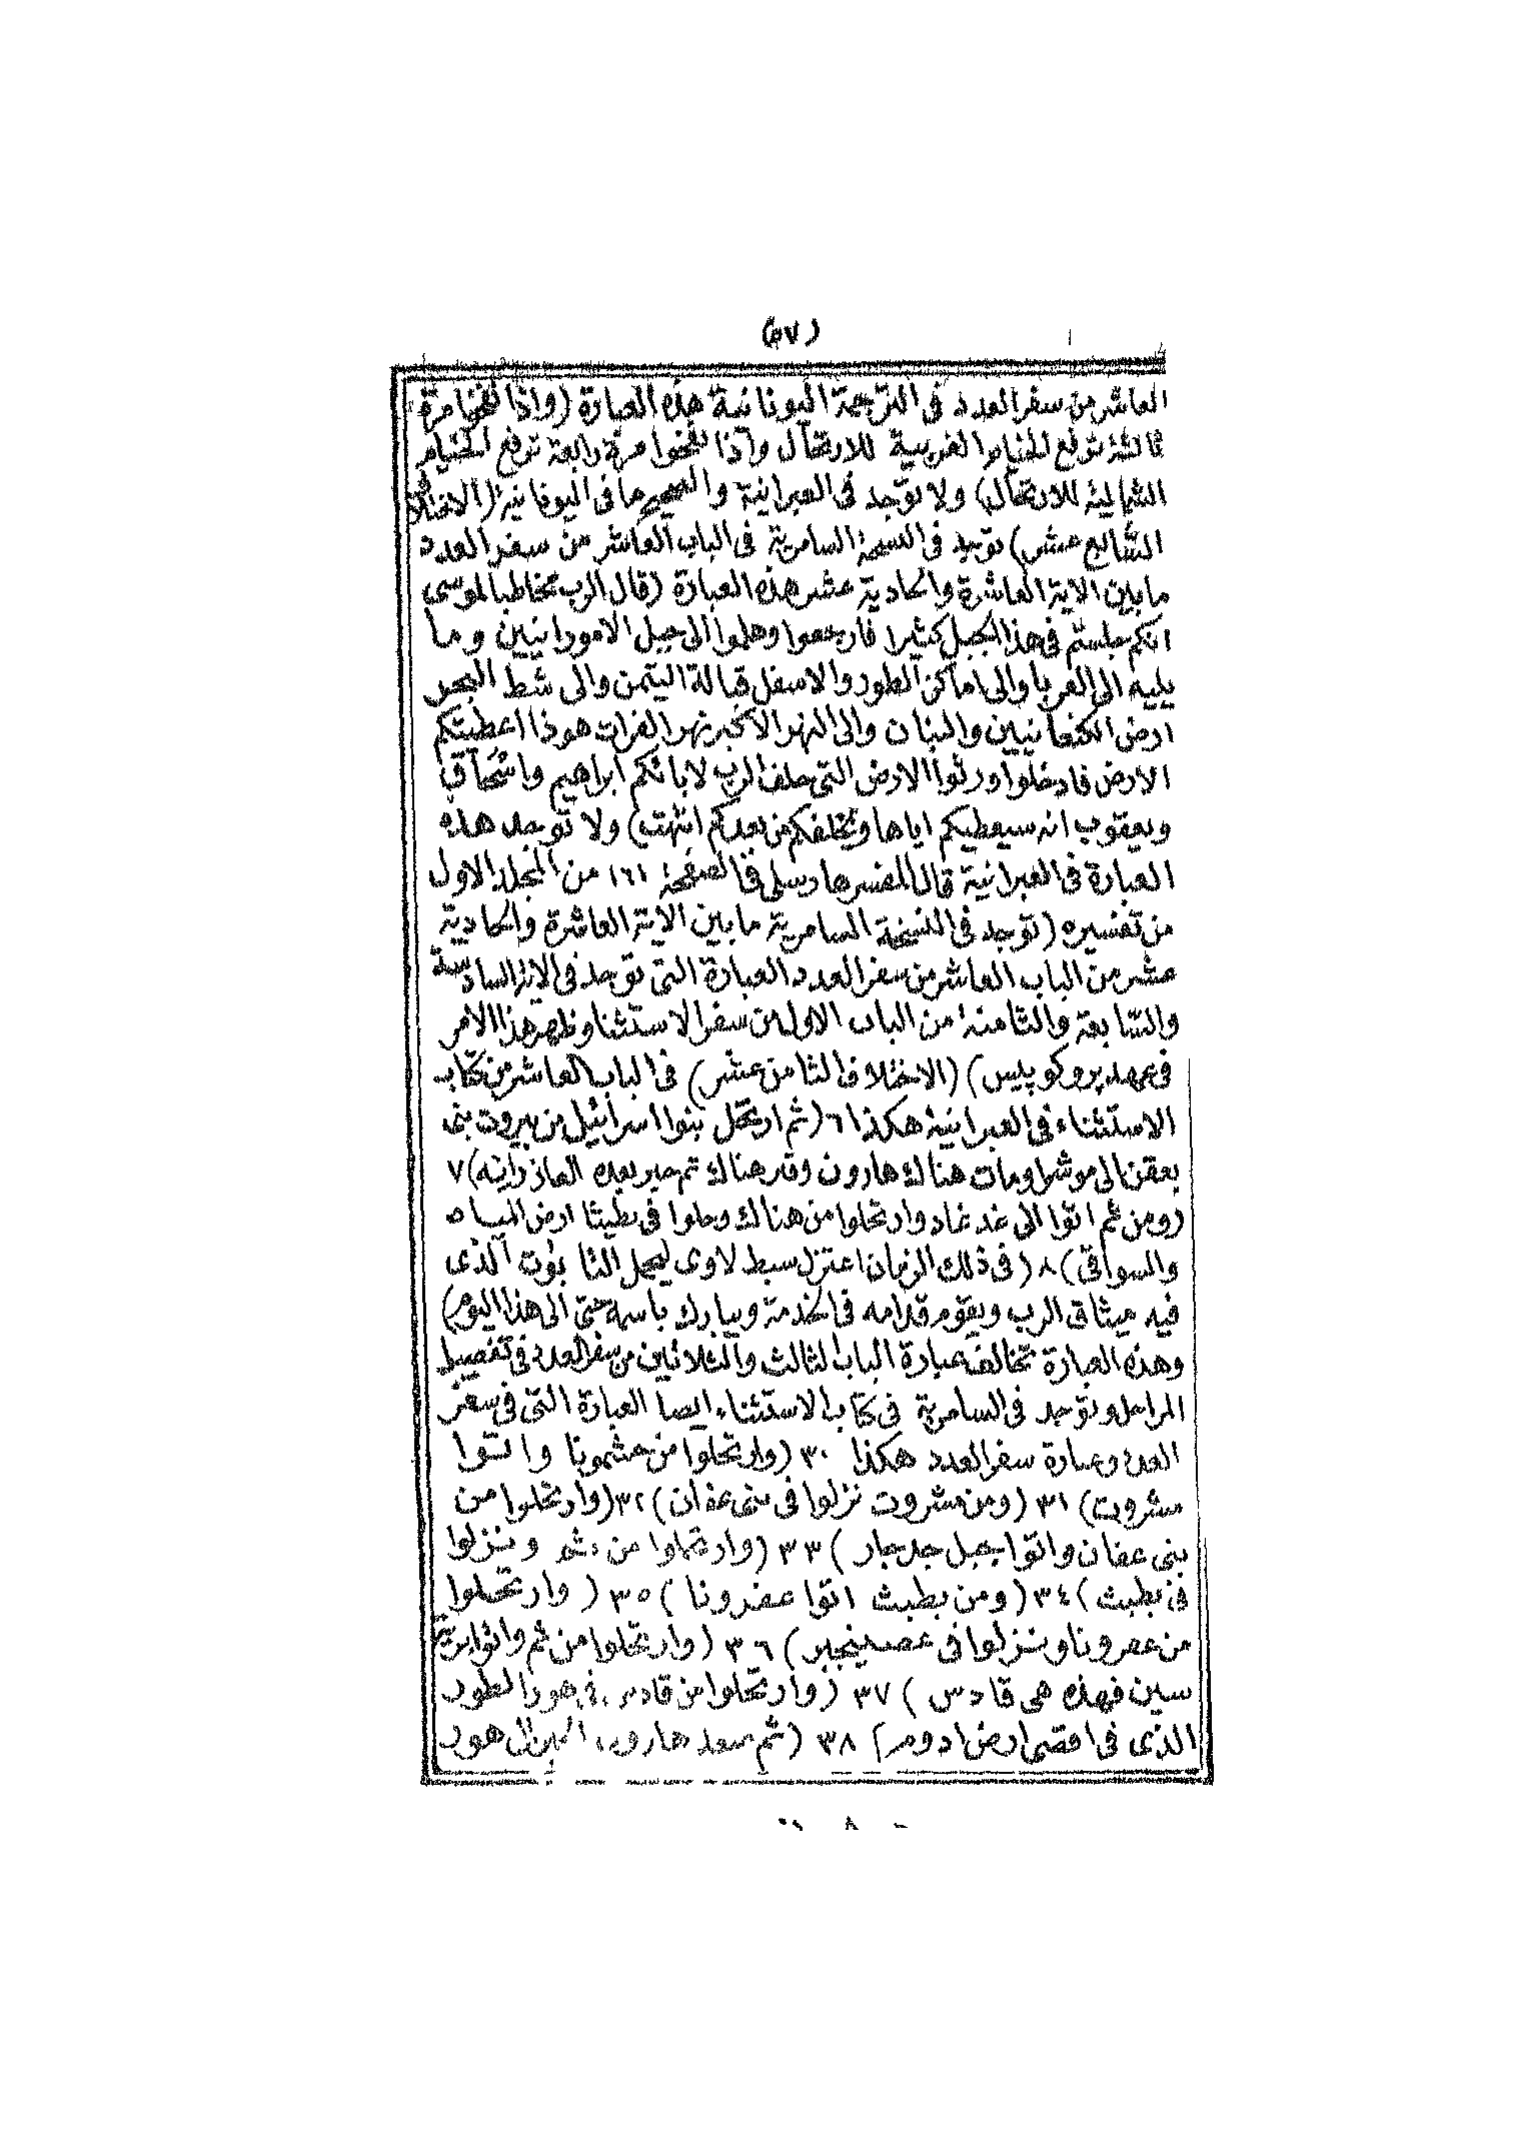 (٥٧)
العاشر من سفر العدد فى الترجمة اليونانية هذه العبارة (واذا نفخوا مرة
ثالثة ترفع الخيام الغربية للارتحال واذا نفخوا مرة رابعة ترفع الخيام
الشمالية للارتحال) ولا توجد فى العبرانية والصحيح ما فى اليونانية (الاختلاف
السابع عشر) توجد فى النسخة السامرية فى الباب العاشر من سفر العدد
ما بين الاية العاشرة والحادية عشر هذه العبارة (قال الرب مخاطبا لموسى
انكم جلستم فى هذا الجبل كثيرا فارجعوا وهلموا الى جبل الامورانيين وما
يليه الى العربا والى اماكن الطور والاسفل قبالة التيمن والى شط البحر
ارض الكنعانيين والبنان والى النهر الاكبر نهر الفرات هوذا اعطيتكم
الارض فادخلوا ورثوا الارض التى حلف الرب لابائكم ابراهيم واسحاق
ويعقوب انه سيعطيكم اياها ويخلفكم من بعدكم انتهت) ولا توجد هذه
العبارة فى العبرانية قال المفسر هارسلى فى الصفحة ١٦١ من المجلد الاول
من تفسيره (توجد فى النسخة السامرية ما بين الاية العاشرة والحادية
عشر من الباب العاشر من سفر العدد العبارة التى توجد فى الاية السادسة
والسابعة والثامنة من الباب الاول من سفر الاستثنا وظهر هذا الامر
فى عهد بروكوبيس) (الاختلاف الثامن عشر) فى الباب العاشر من كتاب
الاستثناء فى العبرانية هكذا ٦ (ثم ارتحل بنوا اسرائيل من بيروت بنى
يعقن الى موشرا ومات هناك هارون وقبر هناك ثم حبر بعده العازر ابنه) ٧
(ومن ثم اتوا الى غدغاد وارتحلوا من هنالك وحلوا فى يطبثا ارض المياه
والسواقى) ٨ (فى ذلك الزمان اعتزل سبط لاوى ليحمل التابوت الذى
فيه ميثاق الرب ويقوم قدامه فى الخدمة ويبارك باسمه حتى الى هذا اليوم)
وهذه العبارة تخالف عبارة الباب الثالث والثلاثين من سفر العدد فى تفصيل
المراحل وتوجد فى السامرية فى كتاب الاستثناء ايضا العبارة التى فى سفر
العدد وعبارة سفر العدد هكذا ٣٠ (وارتحلوا من حشمونا واتوا
مشروت) ٣١ (ومن مشروت نزلوا فى بنى عفان) ٣٢ (وارتحلوا من
بنى عفان واتوا جبل جدجار) ٣٣ (وارتحلوا من ونزلوا
فى يطبث) ٣٤ (ومن يطبث اتوا عفرونا) ٣٥ (وارتحلوا
من عفرونا ونزلوا فى عصينجبر) ٣٦ (وارتحلوا من ثم واتوا برية
سين فهذه هى قادس) ٣٧ (وارتحلوا من قادس فى هور الطور
الذى فى اقصى ارض ادوم) ٣٨ (ثم صعد هارون هور